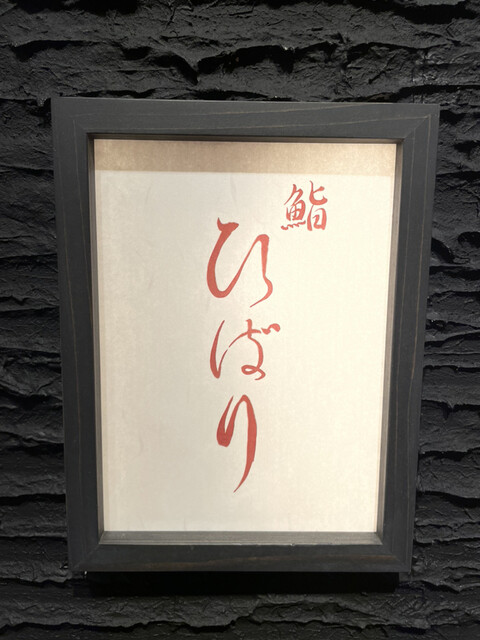 鮨
ひばり